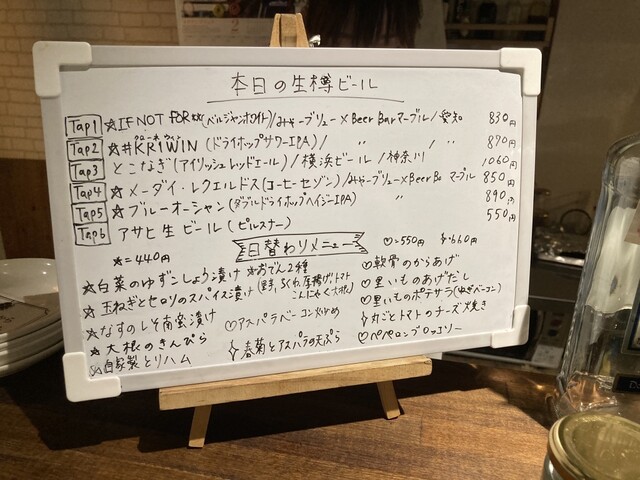 本日の生樽ビール
Tap1 ☆IF NOT FOR☆☆(ベルジャンホワイト)/みやーブリュー×Beer Bar マーブル/愛知 830円
Tap2 ☆#KRiWIN(ドライホップサワーIPA)/ 〃 / 〃 870円
Tap3 とこなぎ(アイリッシュレッドエール)/横浜ビール/神奈川 1060円
Tap4 ☆メーダイ・レクエルドス(コーヒーセゾン)/みやーブリュー×Beer Ba マーブル 850円
Tap5 ☆ブルーオーシャン(ダブルドライホップヘイジーIPA) 〃 890円
Tap6 アサヒ生ビール(ピルスナー) 550円
日替わりメニュー
☆=440円 ♡=550円 =660円
☆白菜のゆずこしょう漬け
☆玉ねぎとセロリのスパイス漬け
☆なすのしそ南蛮漬け
☆大根のきんぴら
自家製とりハム
☆おでん2種
(玉子、ちくわ、厚揚げ、トマト
こんにゃく、大根)
♡アスパラベーコン炒め
春菊とアスパラの天ぷら
♡軟骨のからあげ
♡里いものあげだし
♡里いものポテサラ(ねぎベーコン)
丸ごとトマトのチーズ焼き
♡ペペロンブロッコリー